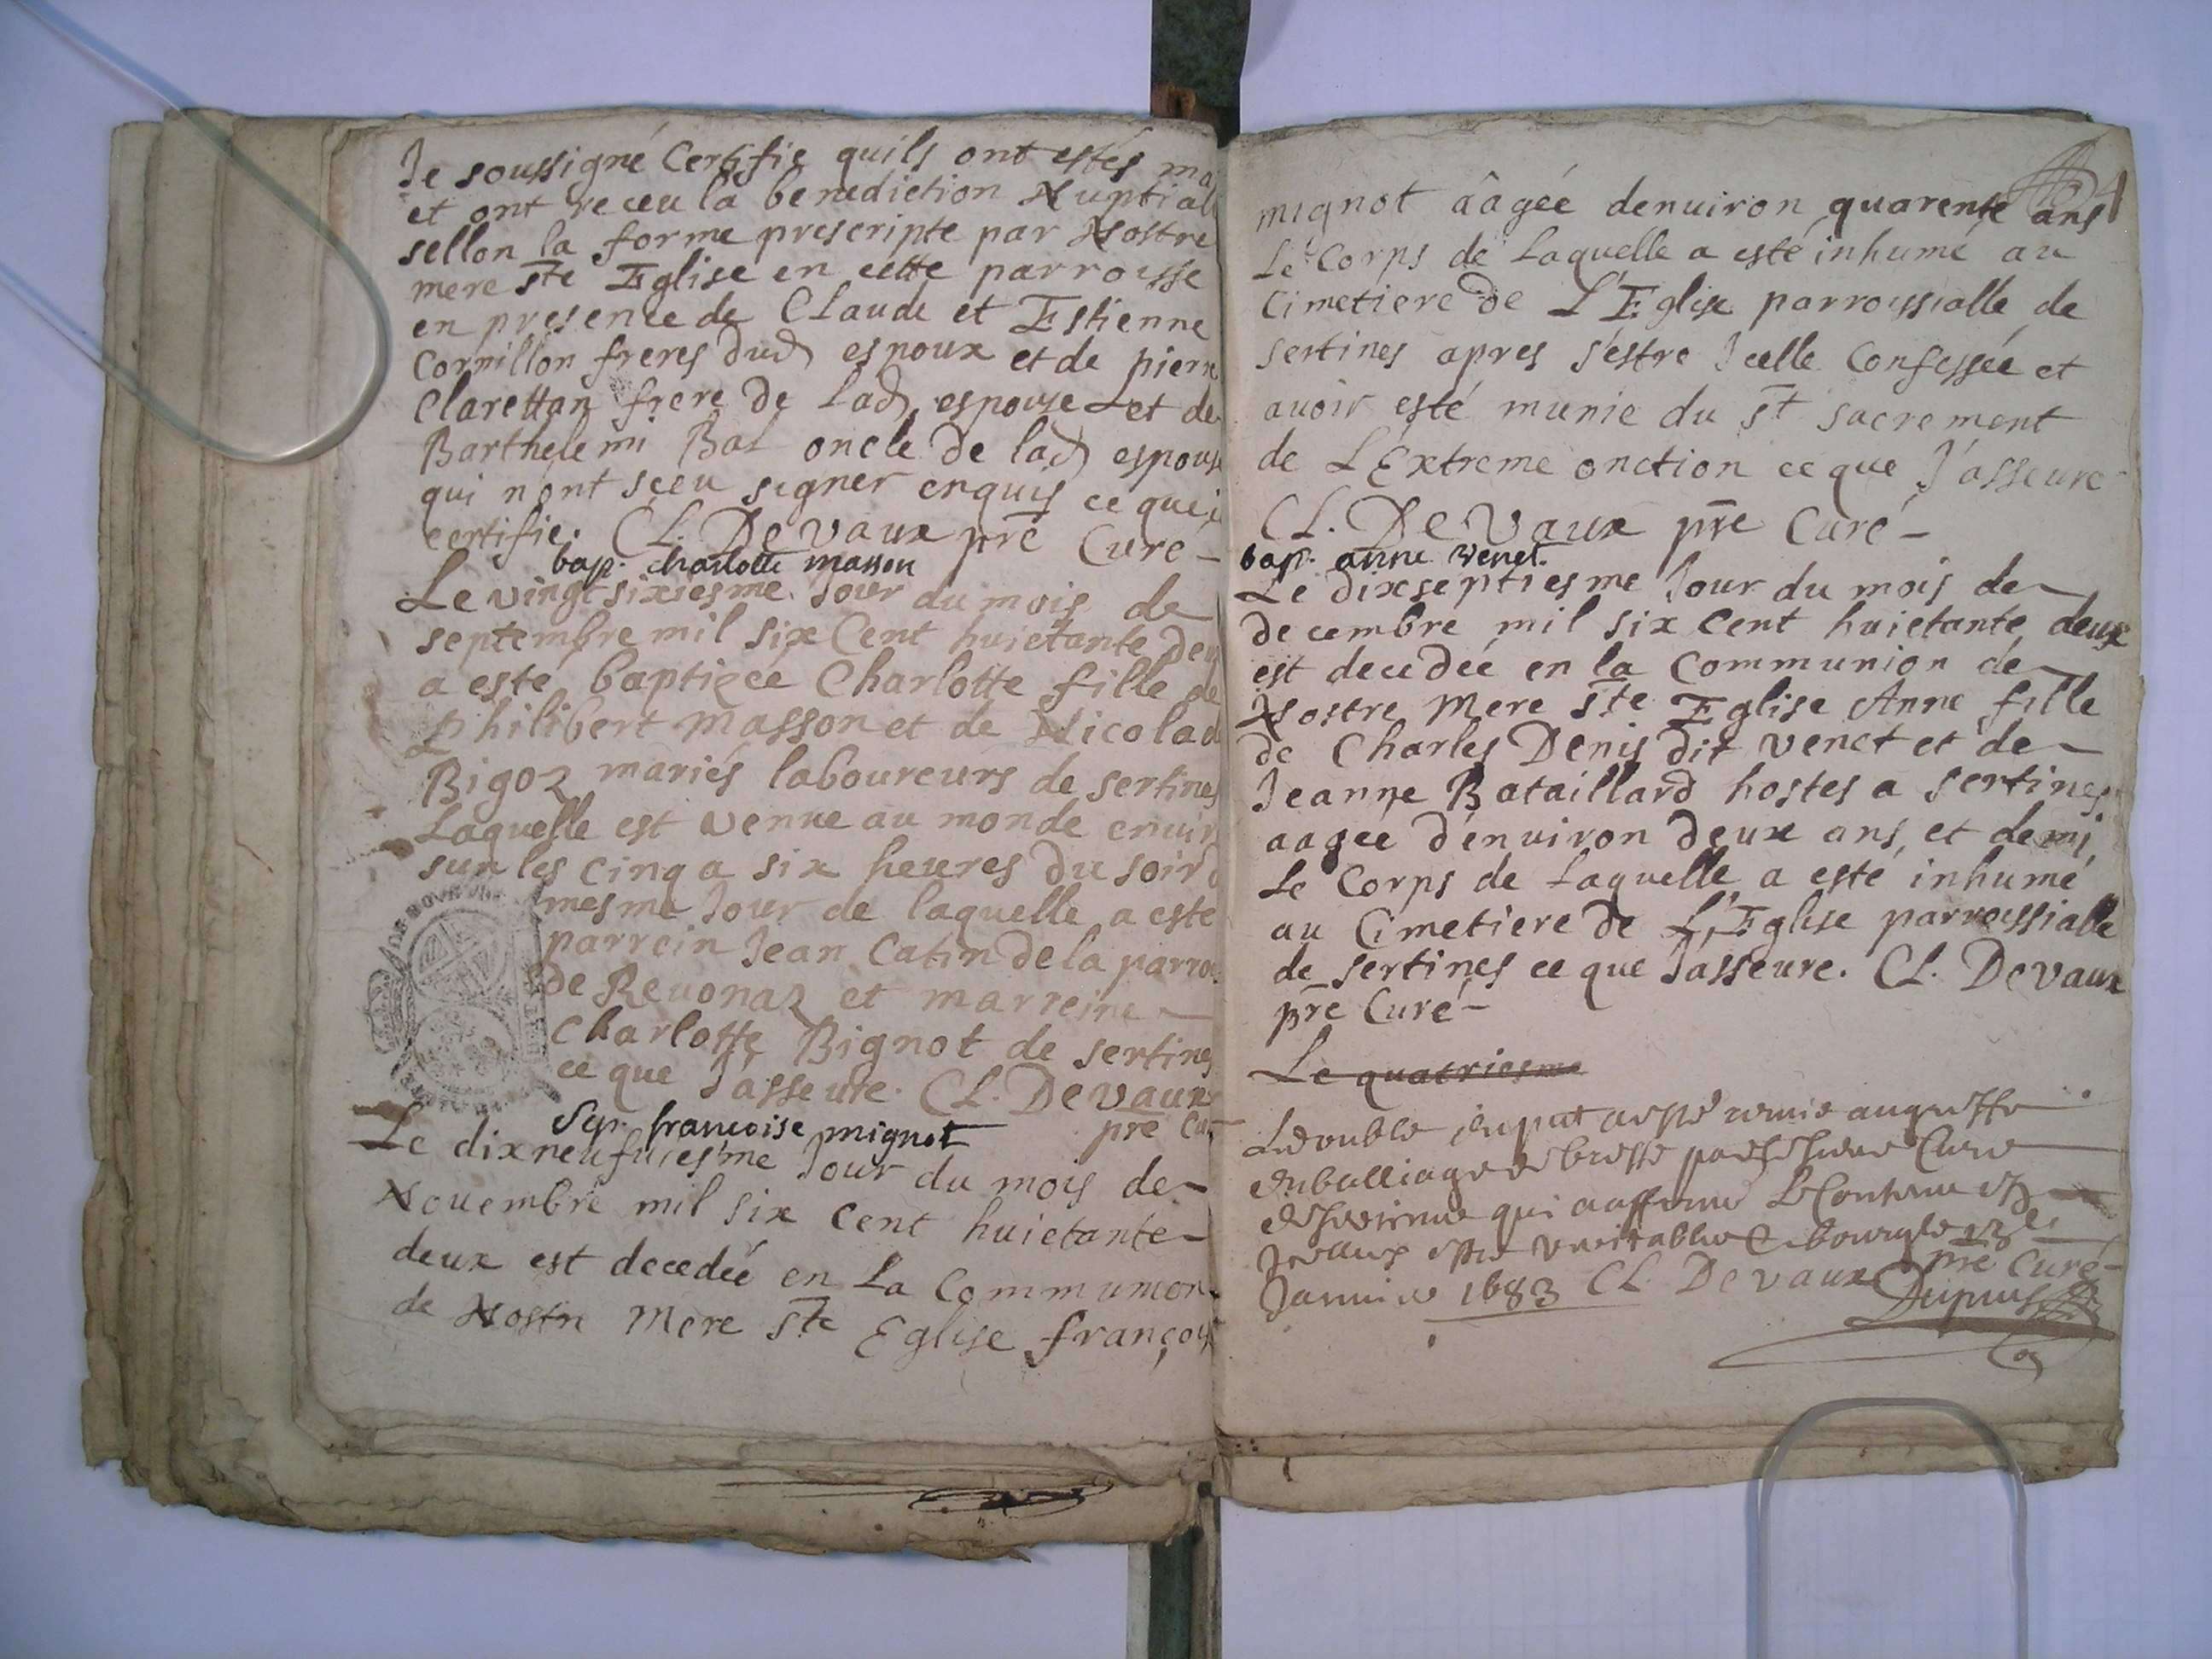 Je soussigné Certifie quils ont estés ma
et ont receu la benediction Nuptial
sellon la forme prescripte par Nostre
mere ste Eglise en cette parroisse
en presence de Claude et Estienne
Cornillon freres dud espoux et de pierre
Clarettan frere de Lad espouse et de
Barthelemi Bal oncle de lad espouse
qui nont sceu signer enquis ce que i
certifie. CL. DeVaux pre Curé -
bap. charlotte masson
Le vingt sixiesme Jour du mois de
septembre mil six Cent huictante deu
a esté baptizée Charlotte fille de
Philibert Masson et de Nicolad
Bigoz mariés laboureurs de sertines
Laquelle est venue au monde enuir
sur les cinq a six heures du soir d
mesme Jour de laquelle a este
parrein Jean Catin de la parroi
de Reuonaz et marreine -
Charlotte Bignot de sertines
ce que J'asseure. CL. DeVaux
pre Cu
Sep. francoise mignot
Le dixneufuiesme Jour du mois de -
Nouembre mil six Cent huictante -
deux est decedée en La Communion
de Nostre Mere ste Eglise françois
mignot âagée denuiron quarente ans
Le Corps de Laquelle a esté inhumé au
Cimetiere de L'Eglise parroissialle de
sertines apres s'estre Jcelle Confessée et
auoir esté munie du st sacrement
de L'Extreme onction ce que J'asseure
CL. DeVaux pre Curé -
bap. anne venet.
Le dixseptiesme Jour du mois de -
decembre mil six Cent huictante deux
est decedée en la Communion de -
Nostre Mere ste Eglise Anne fille
de Charles Denis dit Venet et de -
Jeanne Bataillard hostes a sertines
aagee d'enuiron deux ans et demi
Le Corps de Laquelle a esté inhumé
au Cimetiere de L'Eglise parroissialle
de sertines ce que Jasseure. CL. DeVaux
pre Curé -
Le quatriesme
Ledouble a esté remis au greffe
du balliage de bresse par Curé
qui a affirmé le Contenu
estre veritable bourg le
Januier 1683 CL. DeVaux pre Curé -
Dupuis